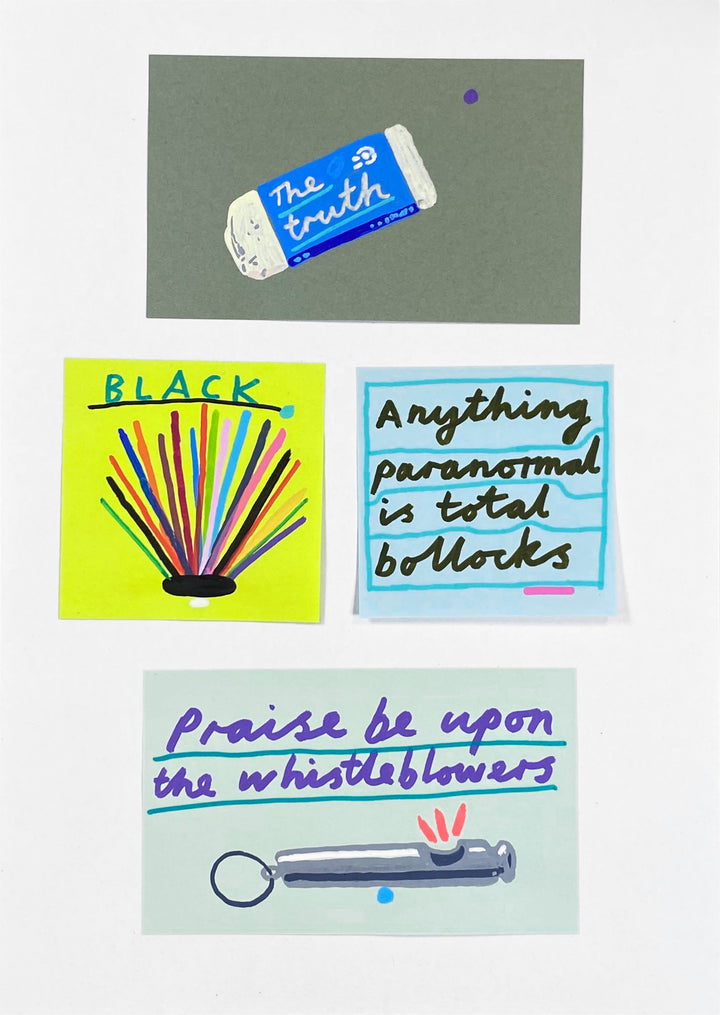 The
truth
BLACK
Anything
paranormal
is total
bollocks
Praise be upon
the whistleblowers